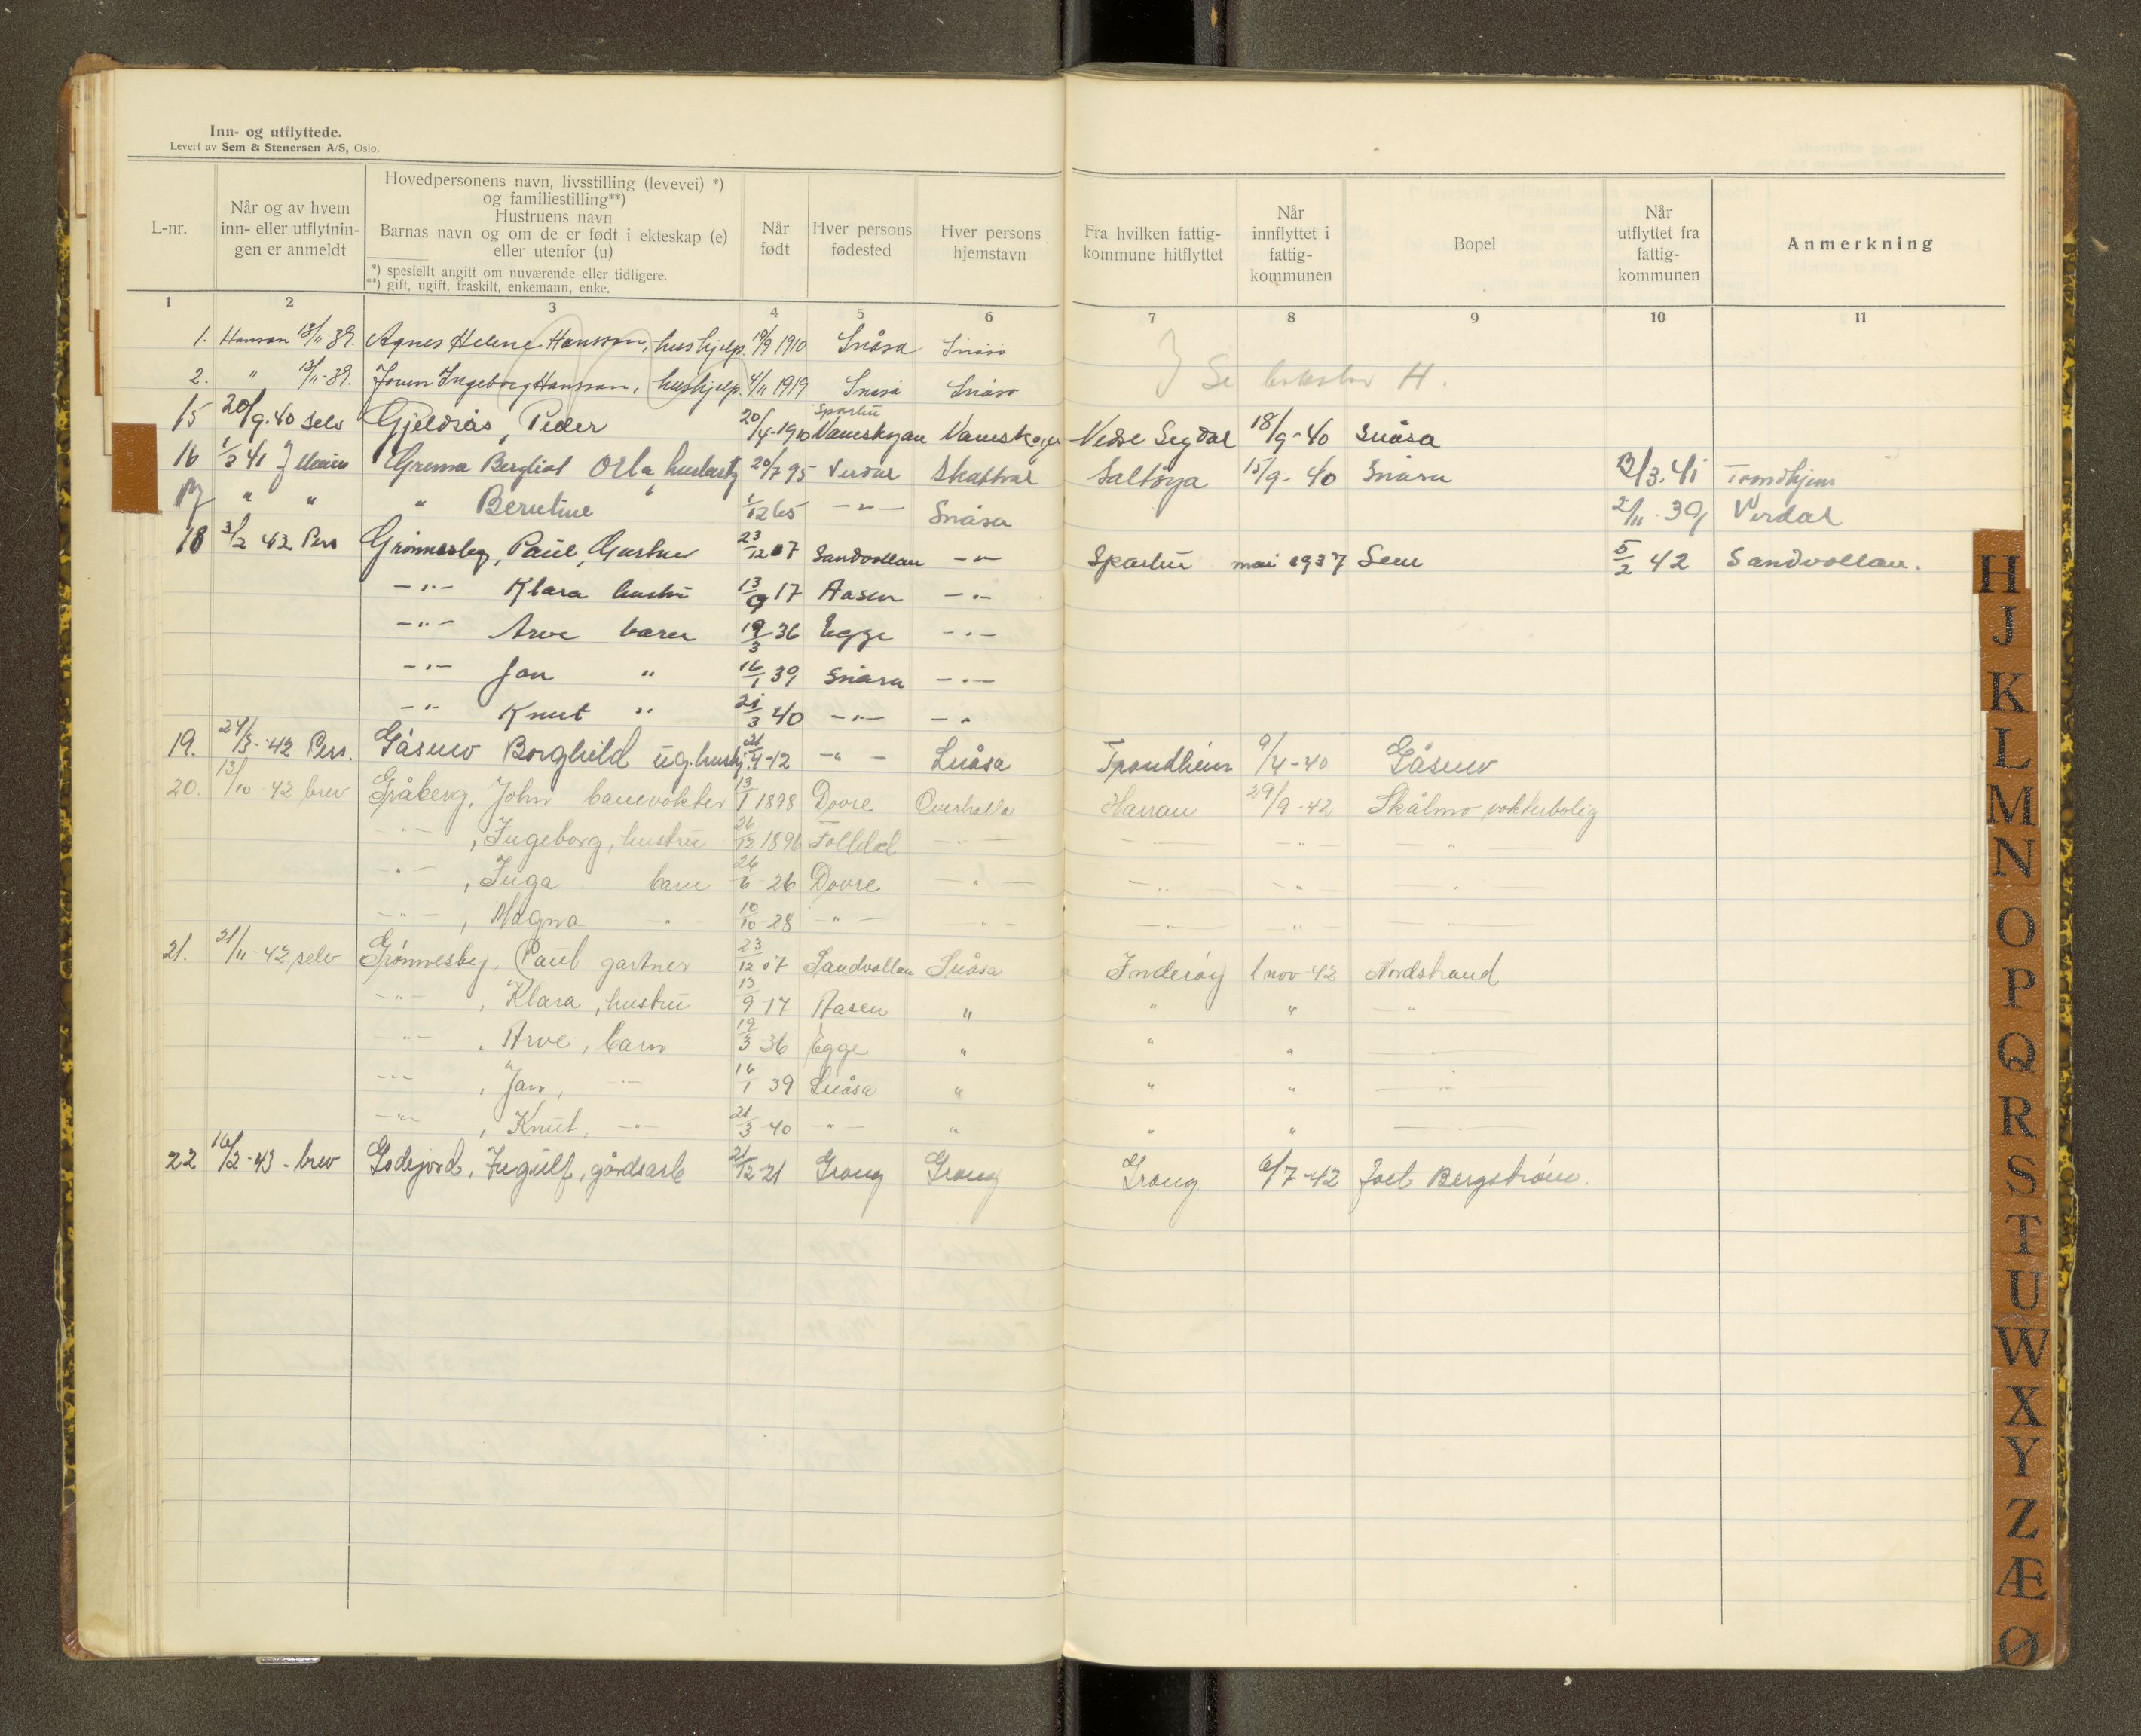 Inn- og utflyttede.
Levert av Sem & Stenersen A/S, Oslo.
L-nr.
Når og av hvem inn- eller utflytnin- gen er anmeldt
Hovedpersonens navn, livsstilling (levevei) *)
og familiestilling**)
Hustruens navn
Barnas navn og om de er født i ekteskap (e)
eller utenfor (u)
*) spesiellt angitt om nuværende eller tidligere.
**) gift, ugift, fraskilt, enkemann, enke.
Når født
Hver persons fødested
Hver persons hjemstavn
Fra hvilken fattig- kommune hitflyttet
Når innflyttet i fattig- kommunen
Bopel
Når utflyttet fra fattig- kommunen
Anmerkning
1 2 3 4 5 6 7 8 9 10 11
1. Hanson 13/11-39. Agnes Helene Hansson, hushjelp. 19/9 1910 Snåsa Snåsa } Se H.
2. " 13/11-39. Ingeborg Hansson, hushjelp. 4/11 1919 Snåsa Snåsa
15 20/9.40 selv Gjeldsås, Peder 20/4-1910 Sparbu Namskogan Namskogan 18/9-40 Snåsa
16 1/3 41 Grema Bergliot 20/7 95 Verdal Skatval Saltöya 15/9-40 Snåsa 12/3.41 Trondhjem
17 " " " Beruline " 1/12 65 -"- Snåsa 2/11-39 Verdal
18 3/2 42 Pers Grönnesby, Paul, Gartner 23/12 07 Sandvollan -"- Sparbu mai 1937 Sem 5/2 42 Sandvollan.
-"- Klara hustru 13/9 17 Aasen -"-
-"- Arve barn 19/3 36 Egge -"-
-"- Jan " 16/1 39 Snåsa -"-
-"- Knut " 21/3 40 -"- -"-
19. 24/3-42 Pers. Gåsmo Borghild ug. hushj. 21/4-12 -"- Snåsa Trondheim 9/4-40 Gåsmo
20. 13/10-42 brev Gråberg, John banevokter 13/1 1898 Dovre Overhalla Harran 29/9-42 Skålmo vokterbolig
-"- , Ingeborg, hustru 26/12 1896 Folldal -"- -"- -"- -"-
-"- , Inga barn 26/6-26 Dovre -"- -"- -"- -"-
-"- , Magna -"- 10/10-28 -"- -"- -"- -"- -"-
21. 21/11-42 selv Grønnesby, Paul gartner 23/12 07 Sandvollan Snåsa Inderøy 1 nov 42 Nordstrand
-"- , Klara, hustru 13/9 17 Aasen " " " -"-
-"- , Arve, barn 19/3 36 Egge " " " -"-
-"- , Jan, -"- 16/1 39 Snåsa " " " -"-
-"- , Knut, -"- 21/3-40 -"- " " " -"-
22 16/2-43-brev Godejord, Ingulf, gårdsarb 21/12-21 Grong Grong Grong 6/7-42 Joel Bergstrøm.
H
J
K
L
M
N
O
P
Q
R
S
T
U
W
X
Y
Z
Æ
Ø